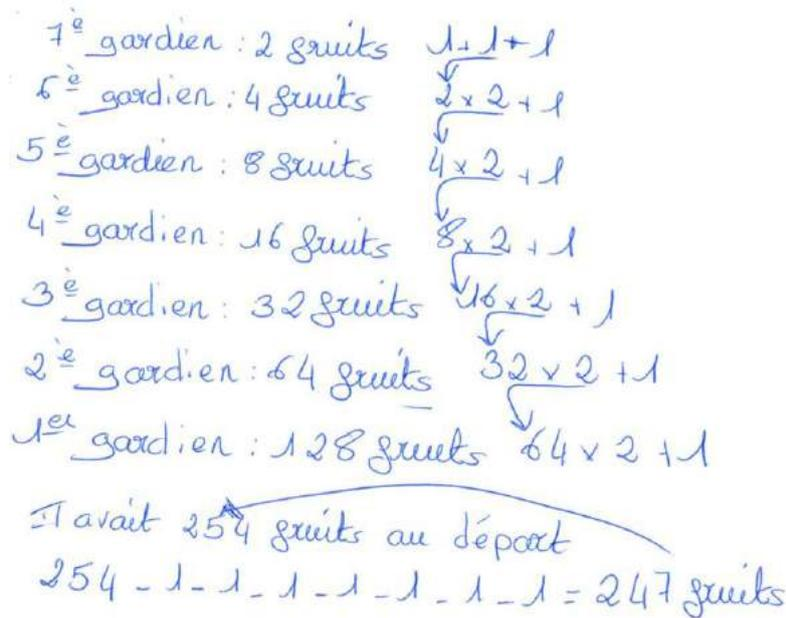 7è gardien : 2 fruits 1+1+1
6è gardien : 4 fruits 2 x 2 + 1
5è gardien : 8 fruits 4 x 2 + 1
4è gardien : 16 fruits 8 x 2 + 1
3è gardien : 32 fruits 16 x 2 + 1
2è gardien : 64 fruits 32 x 2 + 1
1er gardien : 128 fruits 64 x 2 + 1
Il avait 254 fruits au départ
254 - 1 - 1 - 1 - 1 - 1 - 1 - 1 = 247 fruits